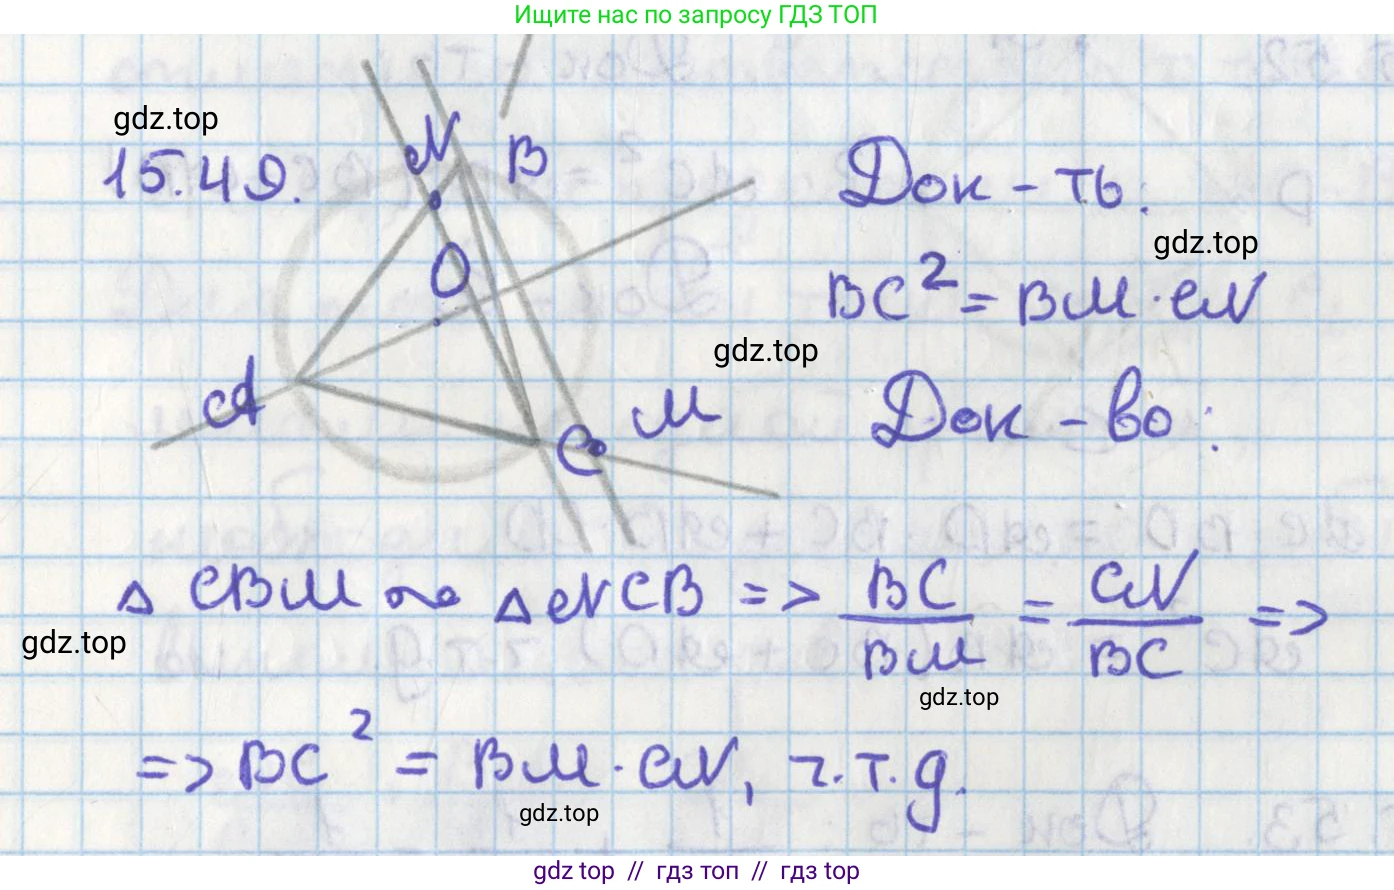 Ищите нас по запросу ГДЗ ТОП
gdz.top
15.49.
N
B
Док-ть:
gdz.top
O
BC² = BM·CN
gdz.top
A
C
M
Док-во:
△ CBM ~ △ NCB => BC/BM = CN/BC =>
gdz.top
gdz.top
=> BC² = BM·CN, ч.т.д.
gdz.top
gdz top // гдз топ // гдз top